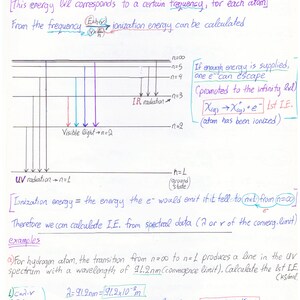 [This energy lvl corresponds to a certain frequency, for each atom]
From the frequency ionization energy can be calculated
n=∞
n=5
n=4
n=3
IR radiation → n=3
Visible light → n=2
n=2
UV radiation → n=1
n=1
(ground state)
If enough energy is supplied,
one e⁻ can escape
(promoted to the infinity lvl)
X(g) → X⁺(g) + e⁻ 1st I.E.
(atom has been ionized)
[Ionization energy = the energy the e⁻ would emit if it fell to n=1 from n=∞]
Therefore we can calculate I.E. from spectral data (λ or ν of the converg. limit)
examples
For hydrogen atom, the transition from n=∞ to n=1 produces a line in the UV
spectrum with a wavelength of 91.2nm (convergence limit). Calculate the 1st I.E.
λ = 91.2nm = 91.2×10⁻⁹ m